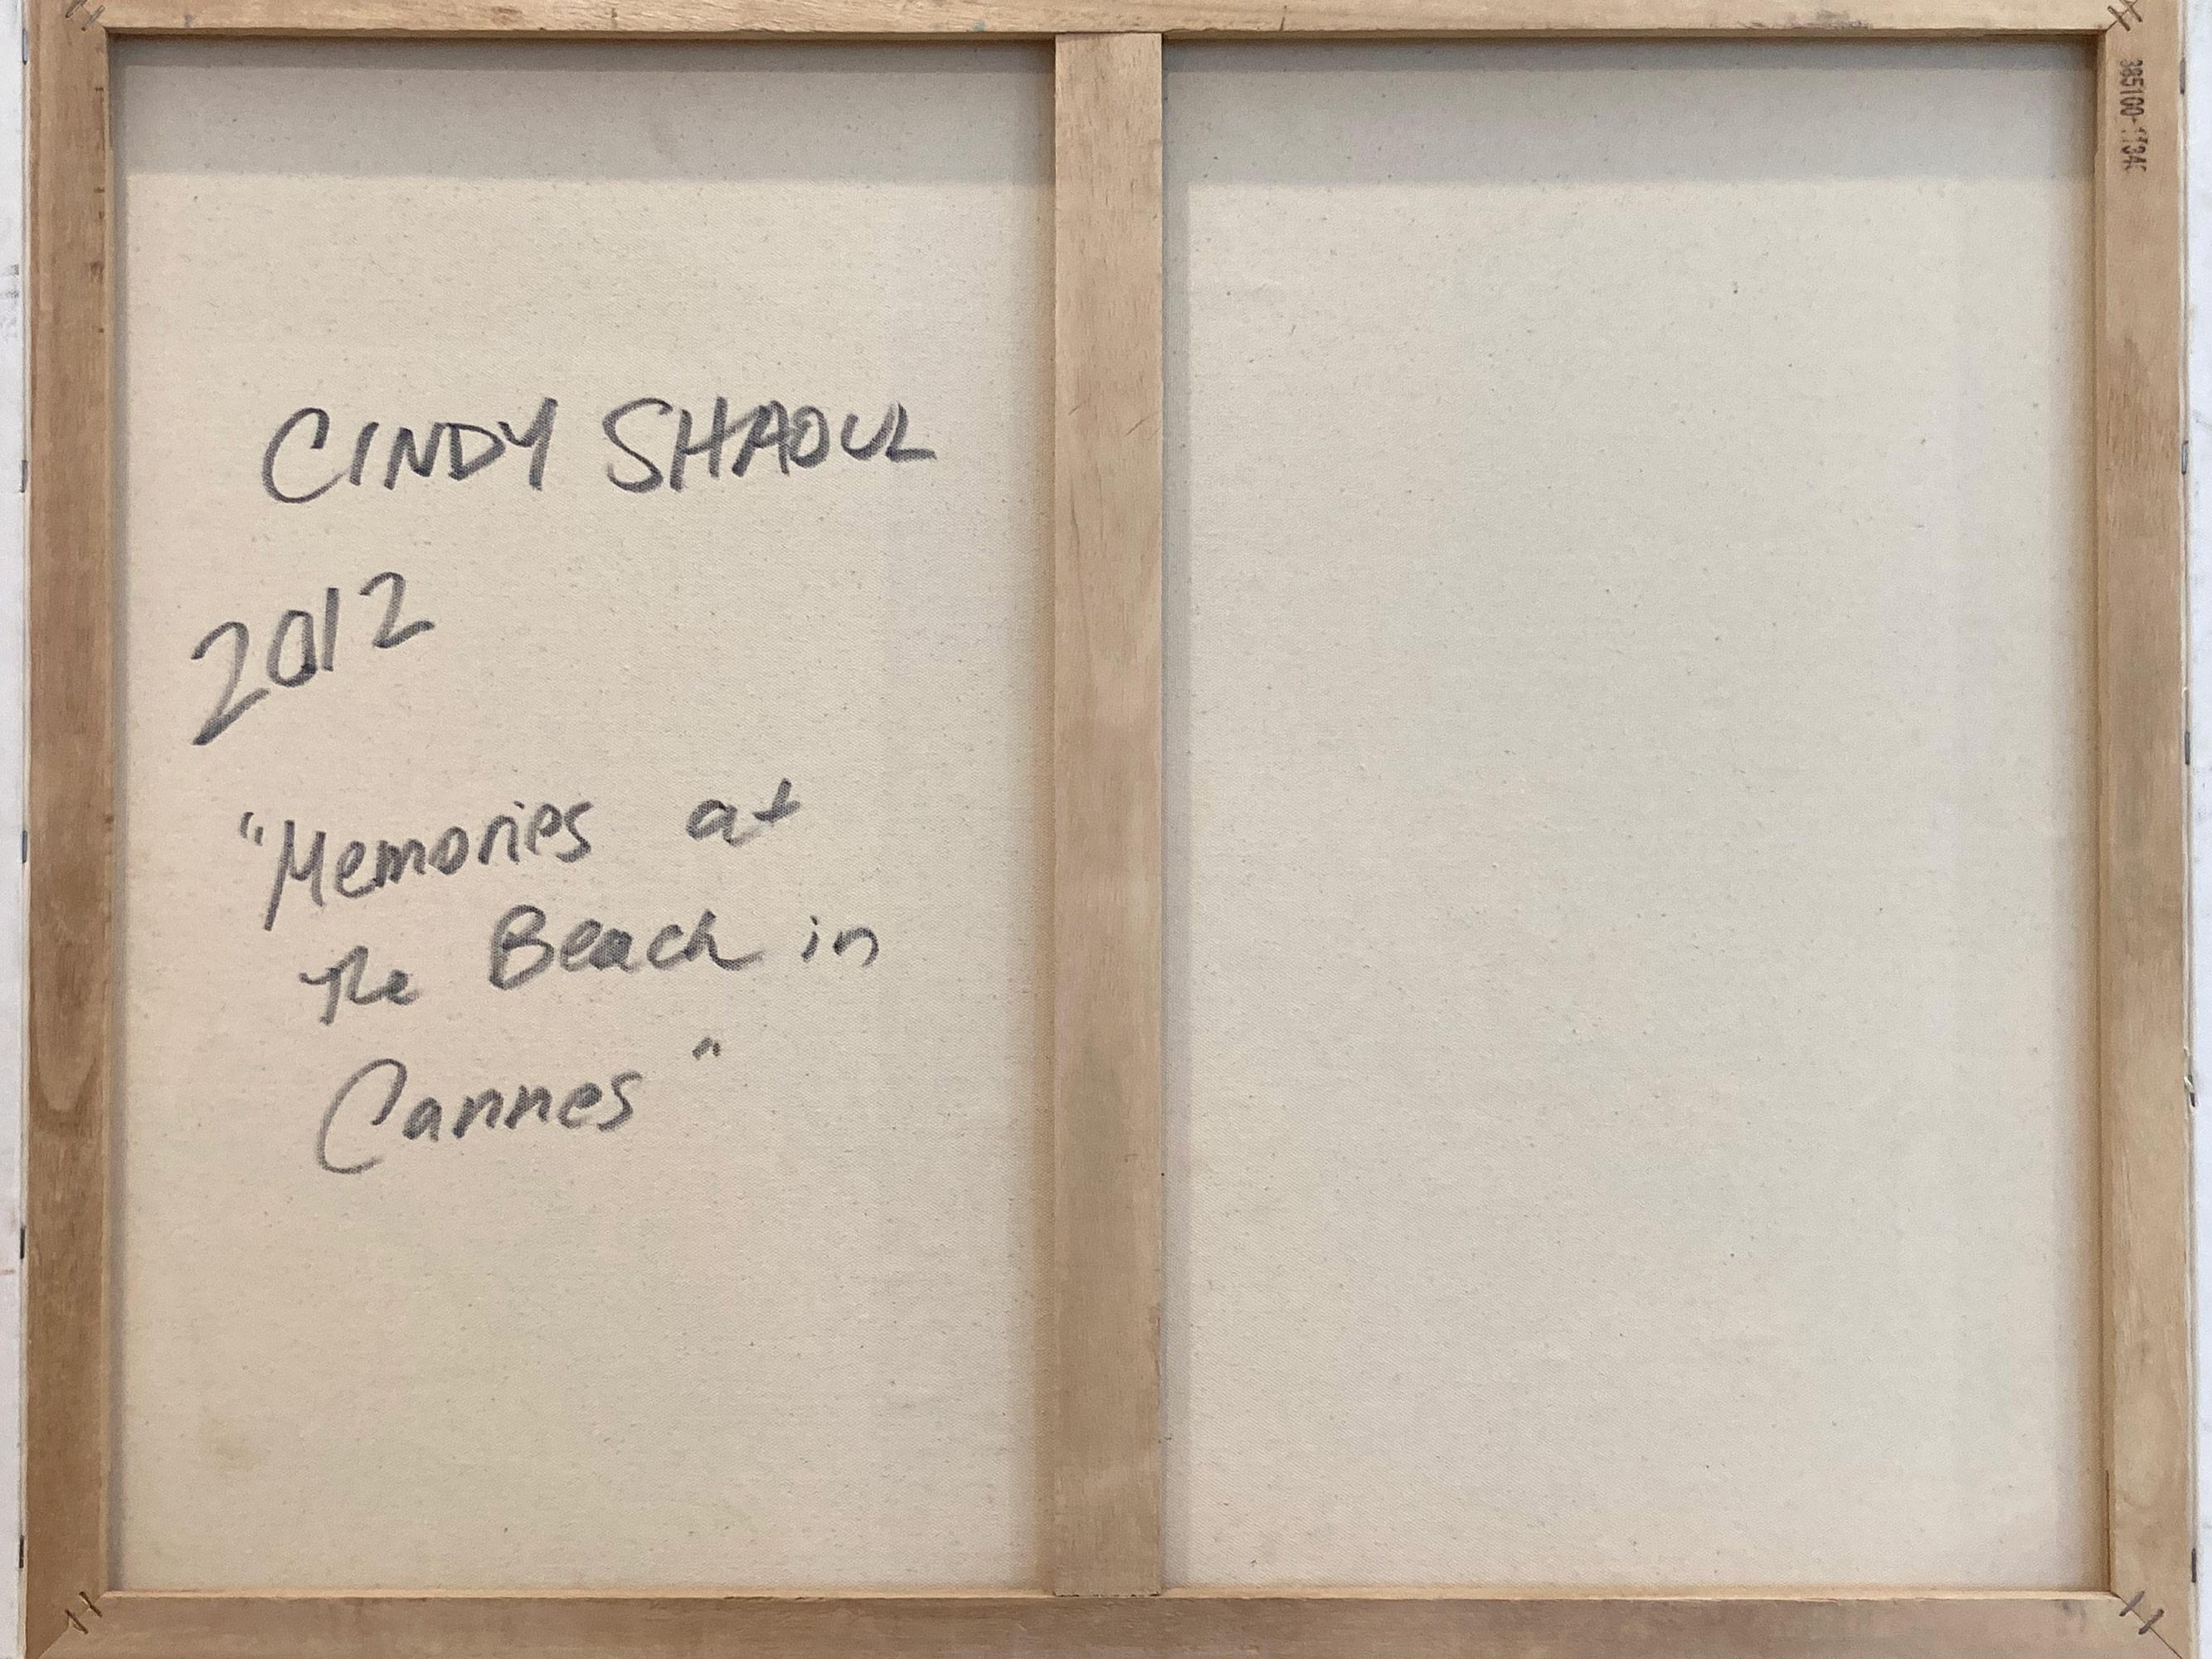 CINDY SHAOUL
2012
"Memories at
the Beach in
Cannes"